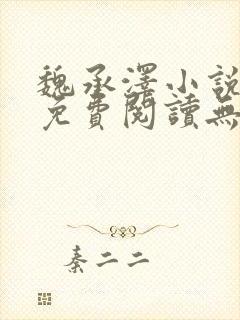 魏承澤小說
免費閱讀無
秦二二